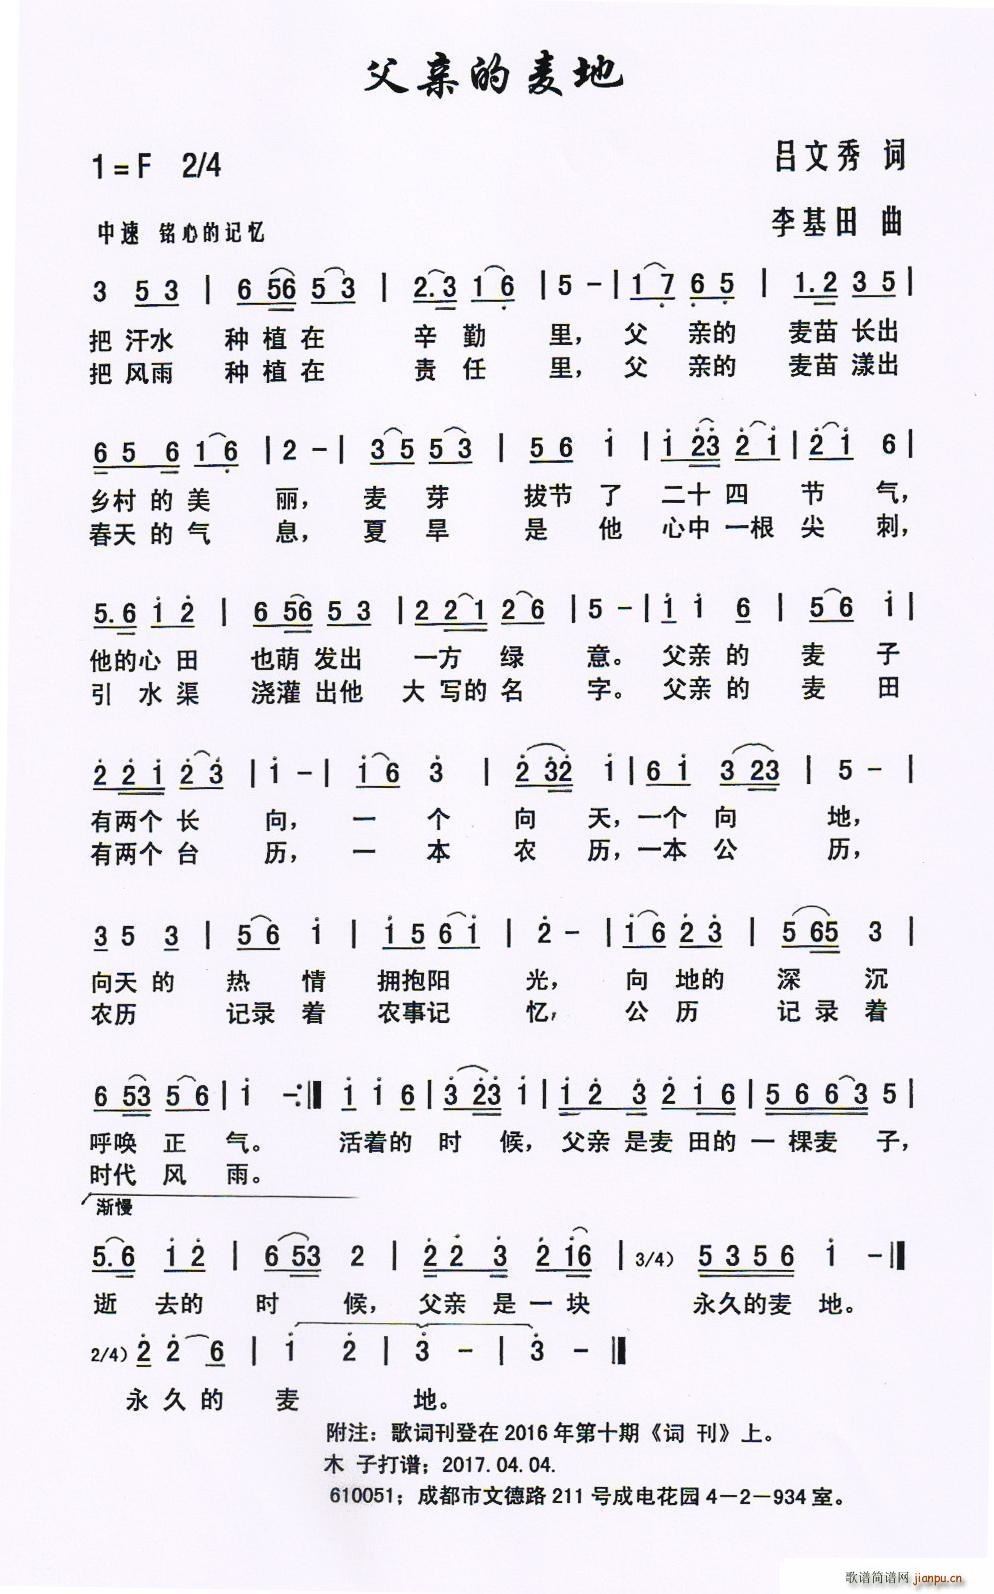 父亲的麦地
1=F 2/4
吕文秀 词
中速 铭心的记忆
李基田 曲
3 53 | 656 53 | 2.3 16 | 5 - | 17 65 | 1.2 35 |
把汗水 种植在 辛勤 里，父 亲的 麦苗长出
把风雨 种植在 责任 里，父 亲的 麦苗漾出
65 6 16 | 2 - | 35 53 | 56 i | i23 2i | 2i 6 |
乡村的美 丽，麦芽 拔节了 二十四 节 气，
春天的气 息，夏旱 是 他 心中一根尖 刺，
5.6 i2 | 656 53 | 221 26 | 5 - | i i 6 | 56 i |
他的心田 也萌发出 一方绿 意。父亲的 麦 子
引 水渠 浇灌出他 大写的名 字。父亲的 麦 田
22i 23 | i - | i6 3 | 232 i | 6i 323 | 5 - |
有两个长 向，一 个 向 天，一个向 地，
有两个台 历，一 本 农 历，一本公 历，
3 5 3 | 56 i | i5 6i | 2 - | i6 23 | 565 3 |
向天的 热 情 拥抱阳 光，向 地的 深 沉
农历 记录着 农事记 忆，公 历 记录着
653 56 | i -:‖ i i 6 | 323 i | i2 3 2i6 | 5663 5 |
呼唤正 气。 活着的 时 候，父亲是麦田的一棵麦 子，
时代风 雨。
渐慢
5.6 i2 | 653 2 | 22 3 2i6 | 3/4) 5356 i -‖
逝 去的 时 候，父亲是一块 永久的麦 地。
2/4) 2 2 6 | i 2 | 3 - | 3 -‖
永久的 麦 地。
附注：歌词刊登在2016年第十期《词 刊》上。
木 子打谱；2017.04.04.
610051；成都市文德路211号成电花园4－2－934室。
歌谱简谱网 jianpu.cn